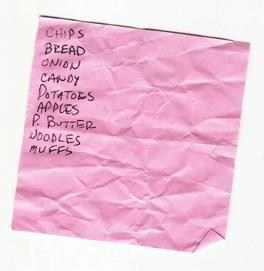 CHIPS
BREAD
ONION
CANDY
POTATOES
APPLES
P. BUTTER
NOODLES
MUFFS